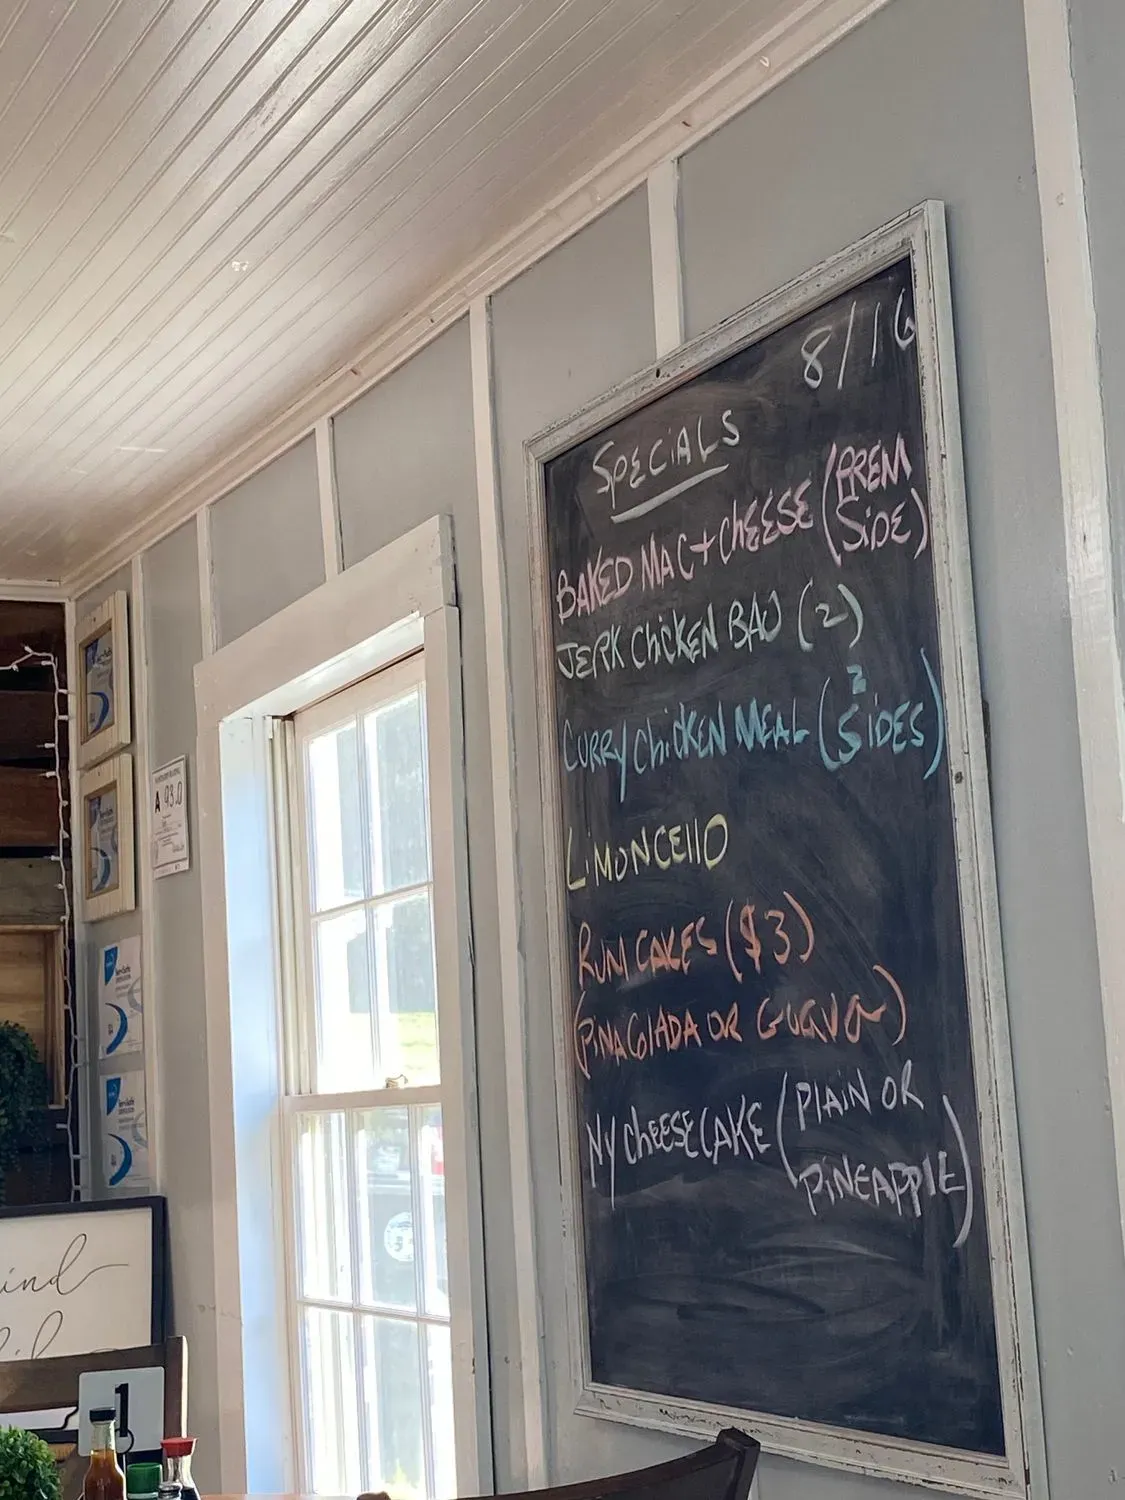 8/16
SPECiALS
BAKED MAC + ChEESE (PREM
SiDE)
JERK ChiCKEN BAO (2)
2
CURRY ChiCKEN MEAL (SiDES)
LiMONCEllO
RUM CAKES ($3)
(PiNA COlADA OR GUAVA)
NY ChEESECAKE (PlAiN OR
PiNEAPPlE)
A 93.0
ServSafe
ServSafe
ind
1